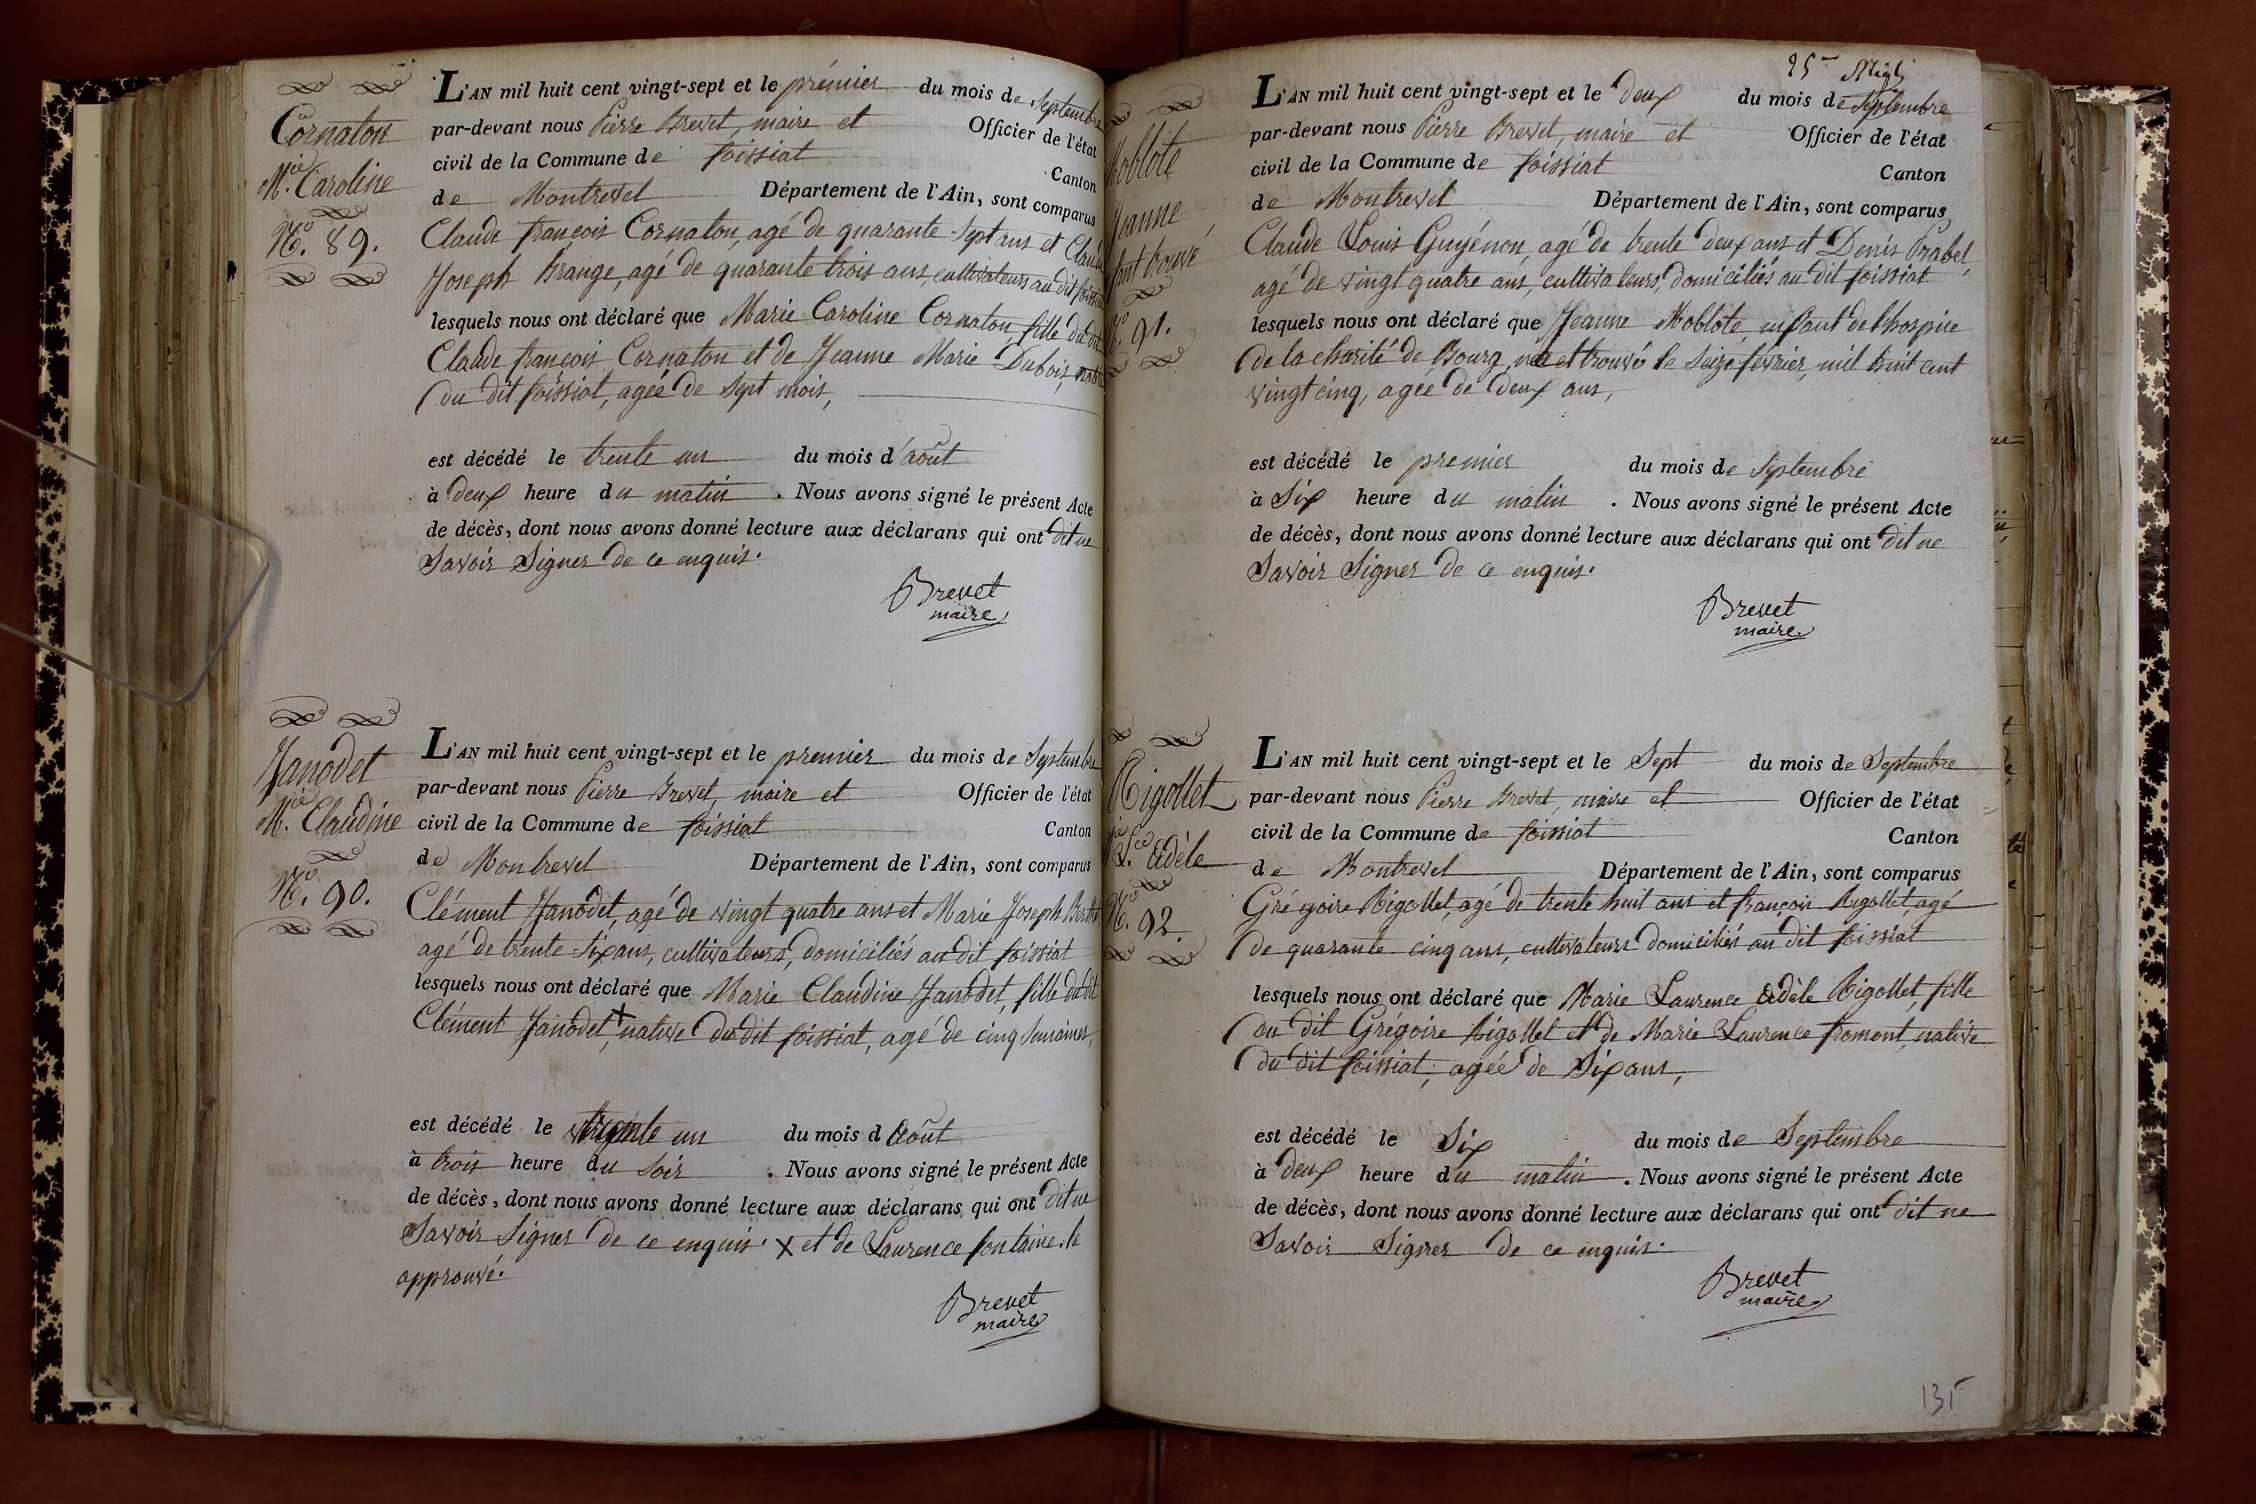 Cornaton
M.ie Caroline
N.o 89.
L'AN mil huit cent vingt-sept et le premier du mois de Septembre
par-devant nous Pierre Brevet, maire et Officier de l'état
civil de la Commune de foissiat Canton
de Montrevel Département de l'Ain, sont comparus
Claude françois Cornaton, agé de quarante Sept ans et Claude
Joseph Brange, agé de quarante trois ans, cultivateurs au dit foissiat
lesquels nous ont déclaré que Marie Caroline Cornaton, fille du dit
Claude françois Cornaton et de Jeanne Marie Dubois, native
du dit foissiat, agée de Sept mois,
est décédé le trente un du mois d'août
à deux heure du matin . Nous avons signé le présent Acte
de décès, dont nous avons donné lecture aux déclarans qui ont dit ne
Savoir Signer de ce enquis.
Brevet
maire
Janodet
M.ie Claudine
N.o 90.
L'AN mil huit cent vingt-sept et le premier du mois de Septembre
par-devant nous Pierre Brevet, maire et Officier de l'état
civil de la Commune de foissiat Canton
de Montrevel Département de l'Ain, sont comparus
Clément Janodet, agé de vingt quatre ans et Marie Joseph
agé de trente Six ans, cultivateurs, domiciliés au dit foissiat
lesquels nous ont déclaré que Marie Claudine Janodet, fille du dit
Clément Janodet, x native du dit foissiat, agé de cinq Semaines,
est décédé le trente un du mois d Août
à trois heure du Soir . Nous avons signé le présent Acte
de décès, dont nous avons donné lecture aux déclarans qui ont dit ne
Savoir Signer de ce enquis. x et de Laurence fontaine. le
approuvé.
Brevet
maire
25
Moblote
Jeanne
N.o 91.
L'AN mil huit cent vingt-sept et le Deux du mois de Septembre
par-devant nous Pierre Brevet, maire et Officier de l'état
civil de la Commune de foissiat Canton
de Montrevel Département de l'Ain, sont comparus
Claude Louis Guyénon, agé de trente deux ans et Denis Prabel,
agé de vingt quatre ans, cultivateurs, domiciliés au dit foissiat
lesquels nous ont déclaré que Jeanne Moblote, enfant de l'hospice
de la charité de Bourg, née et trouvé le Seize février, mil huit cent
vingt cinq, agée de deux ans,
est décédé le premier du mois de Septembre
à Six heure du matin . Nous avons signé le présent Acte
de décès, dont nous avons donné lecture aux déclarans qui ont dit ne
Savoir Signer de ce enquis.
Brevet
maire
Rigollet
M.ie L.ce Adèle
N.o 92.
L'AN mil huit cent vingt-sept et le Sept du mois de Septembre
par-devant nous Pierre Brevet, maire et Officier de l'état
civil de la Commune de foissiat Canton
de Montrevel Département de l'Ain, sont comparus
Grégoire Rigollet, agé de trente huit ans et françois Rigollet, agé
de quarante cinq ans, cultivateurs domiciliés au dit foissiat
lesquels nous ont déclaré que Marie Laurence Adèle Rigollet, fille
du dit Grégoire Rigollet et de Marie Laurence fromont, native
du dit foissiat, agée de Six ans,
est décédé le Six du mois de Septembre
à deux heure du matin . Nous avons signé le présent Acte
de décès, dont nous avons donné lecture aux déclarans qui ont dit ne
Savoir Signer de ce enquis.
Brevet
maire
135